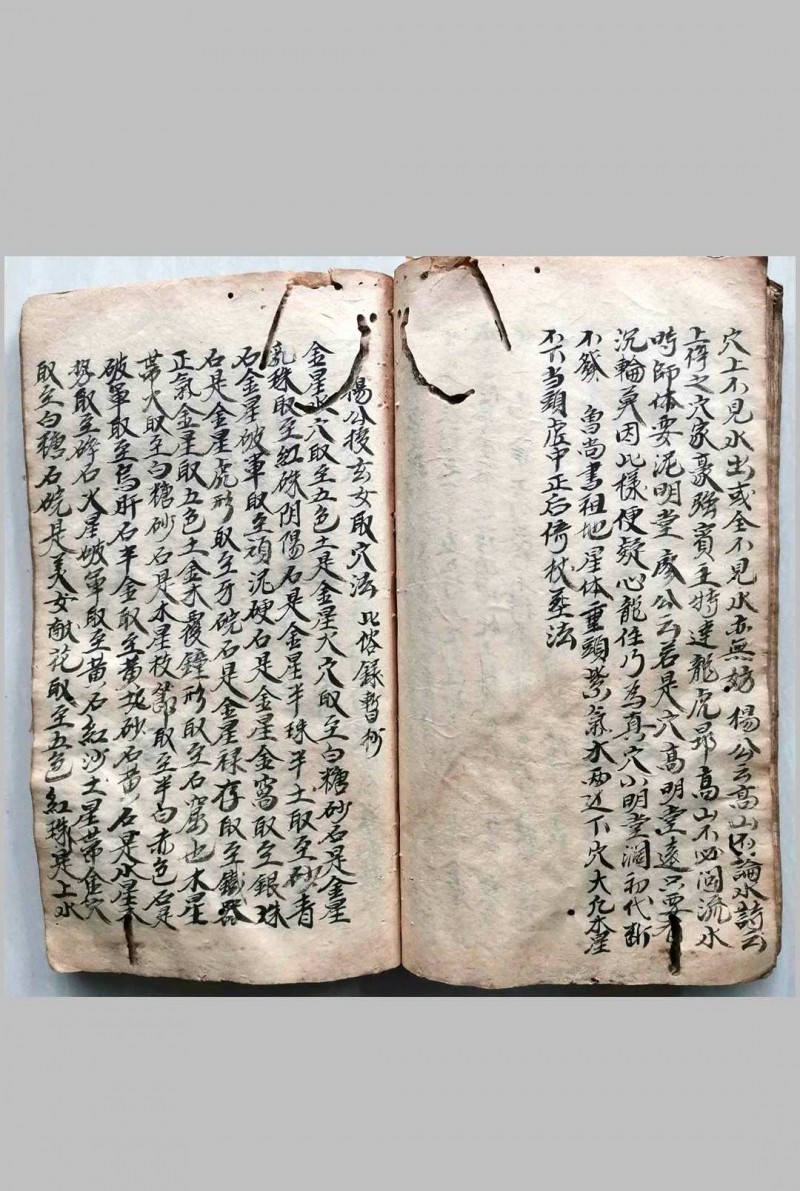 穴上不見水出或全不見水亦無妨楊公云高山不論水詩云
上得之穴家豪強賓主特達龍虎昂高山不必問流水
時師休要泥明堂廖公云若是穴高明堂遠只要看
沉輪莫因此樣便疑心龍住乃為真穴小明堂濶初代斷
不發 魯尚書祖地星体重頭紫氣水两边下穴大凡木星
不下当頭虗中正后倚杖葬法
楊公授玄女取穴法 比俗録暫抄
金星水穴取至五色土是金星火穴取至白糖砂石是金星
乳珠取至紅硃阴陽石是金星半珠半土取至砂青
石金星破軍取至頑泥硬石是金星金窩取至銀珠
石是金星虎形取至牙硍石是金星禄存取至鐵器
正氣金星取五色土金水覆鐘形取至石窟也木星
帶火取至白糖砂石是木星枝節取至半白赤色石是
破軍取至烏肝石半金取至黄坭砂石黄石是水星
取至碎石火星破軍取至黄石紅沙土星帶金穴
取至白糖石硍是美女献花取至五色紅珠是上水